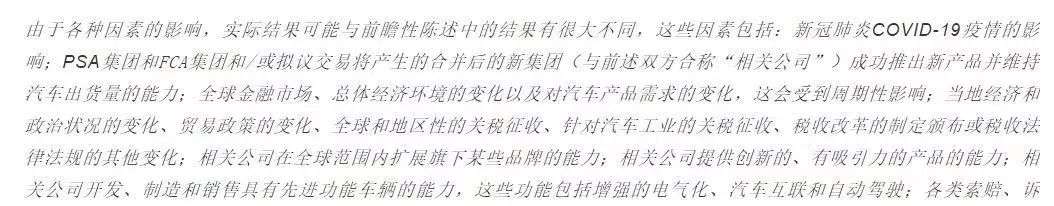 由于各种因素的影响，实际结果可能与前瞻性陈述中的结果有很大不同，这些因素包括：新冠肺炎COVID-19疫情的影
响；PSA集团和FCA集团和/或拟议交易将产生的合并后的新集团（与前述双方合称“相关公司”）成功推出新产品并维持
汽车出货量的能力；全球金融市场、总体经济环境的变化以及对汽车产品需求的变化，这会受到周期性影响；当地经济和
政治状况的变化、贸易政策的变化、全球和地区性的关税征收、针对汽车工业的关税征收、税收改革的制定颁布或税收法
律法规的其他变化；相关公司在全球范围内扩展旗下某些品牌的能力；相关公司提供创新的、有吸引力的产品的能力；相
关公司开发、制造和销售具有先进功能车辆的能力，这些功能包括增强的电气化、汽车互联和自动驾驶；各类索赔、诉